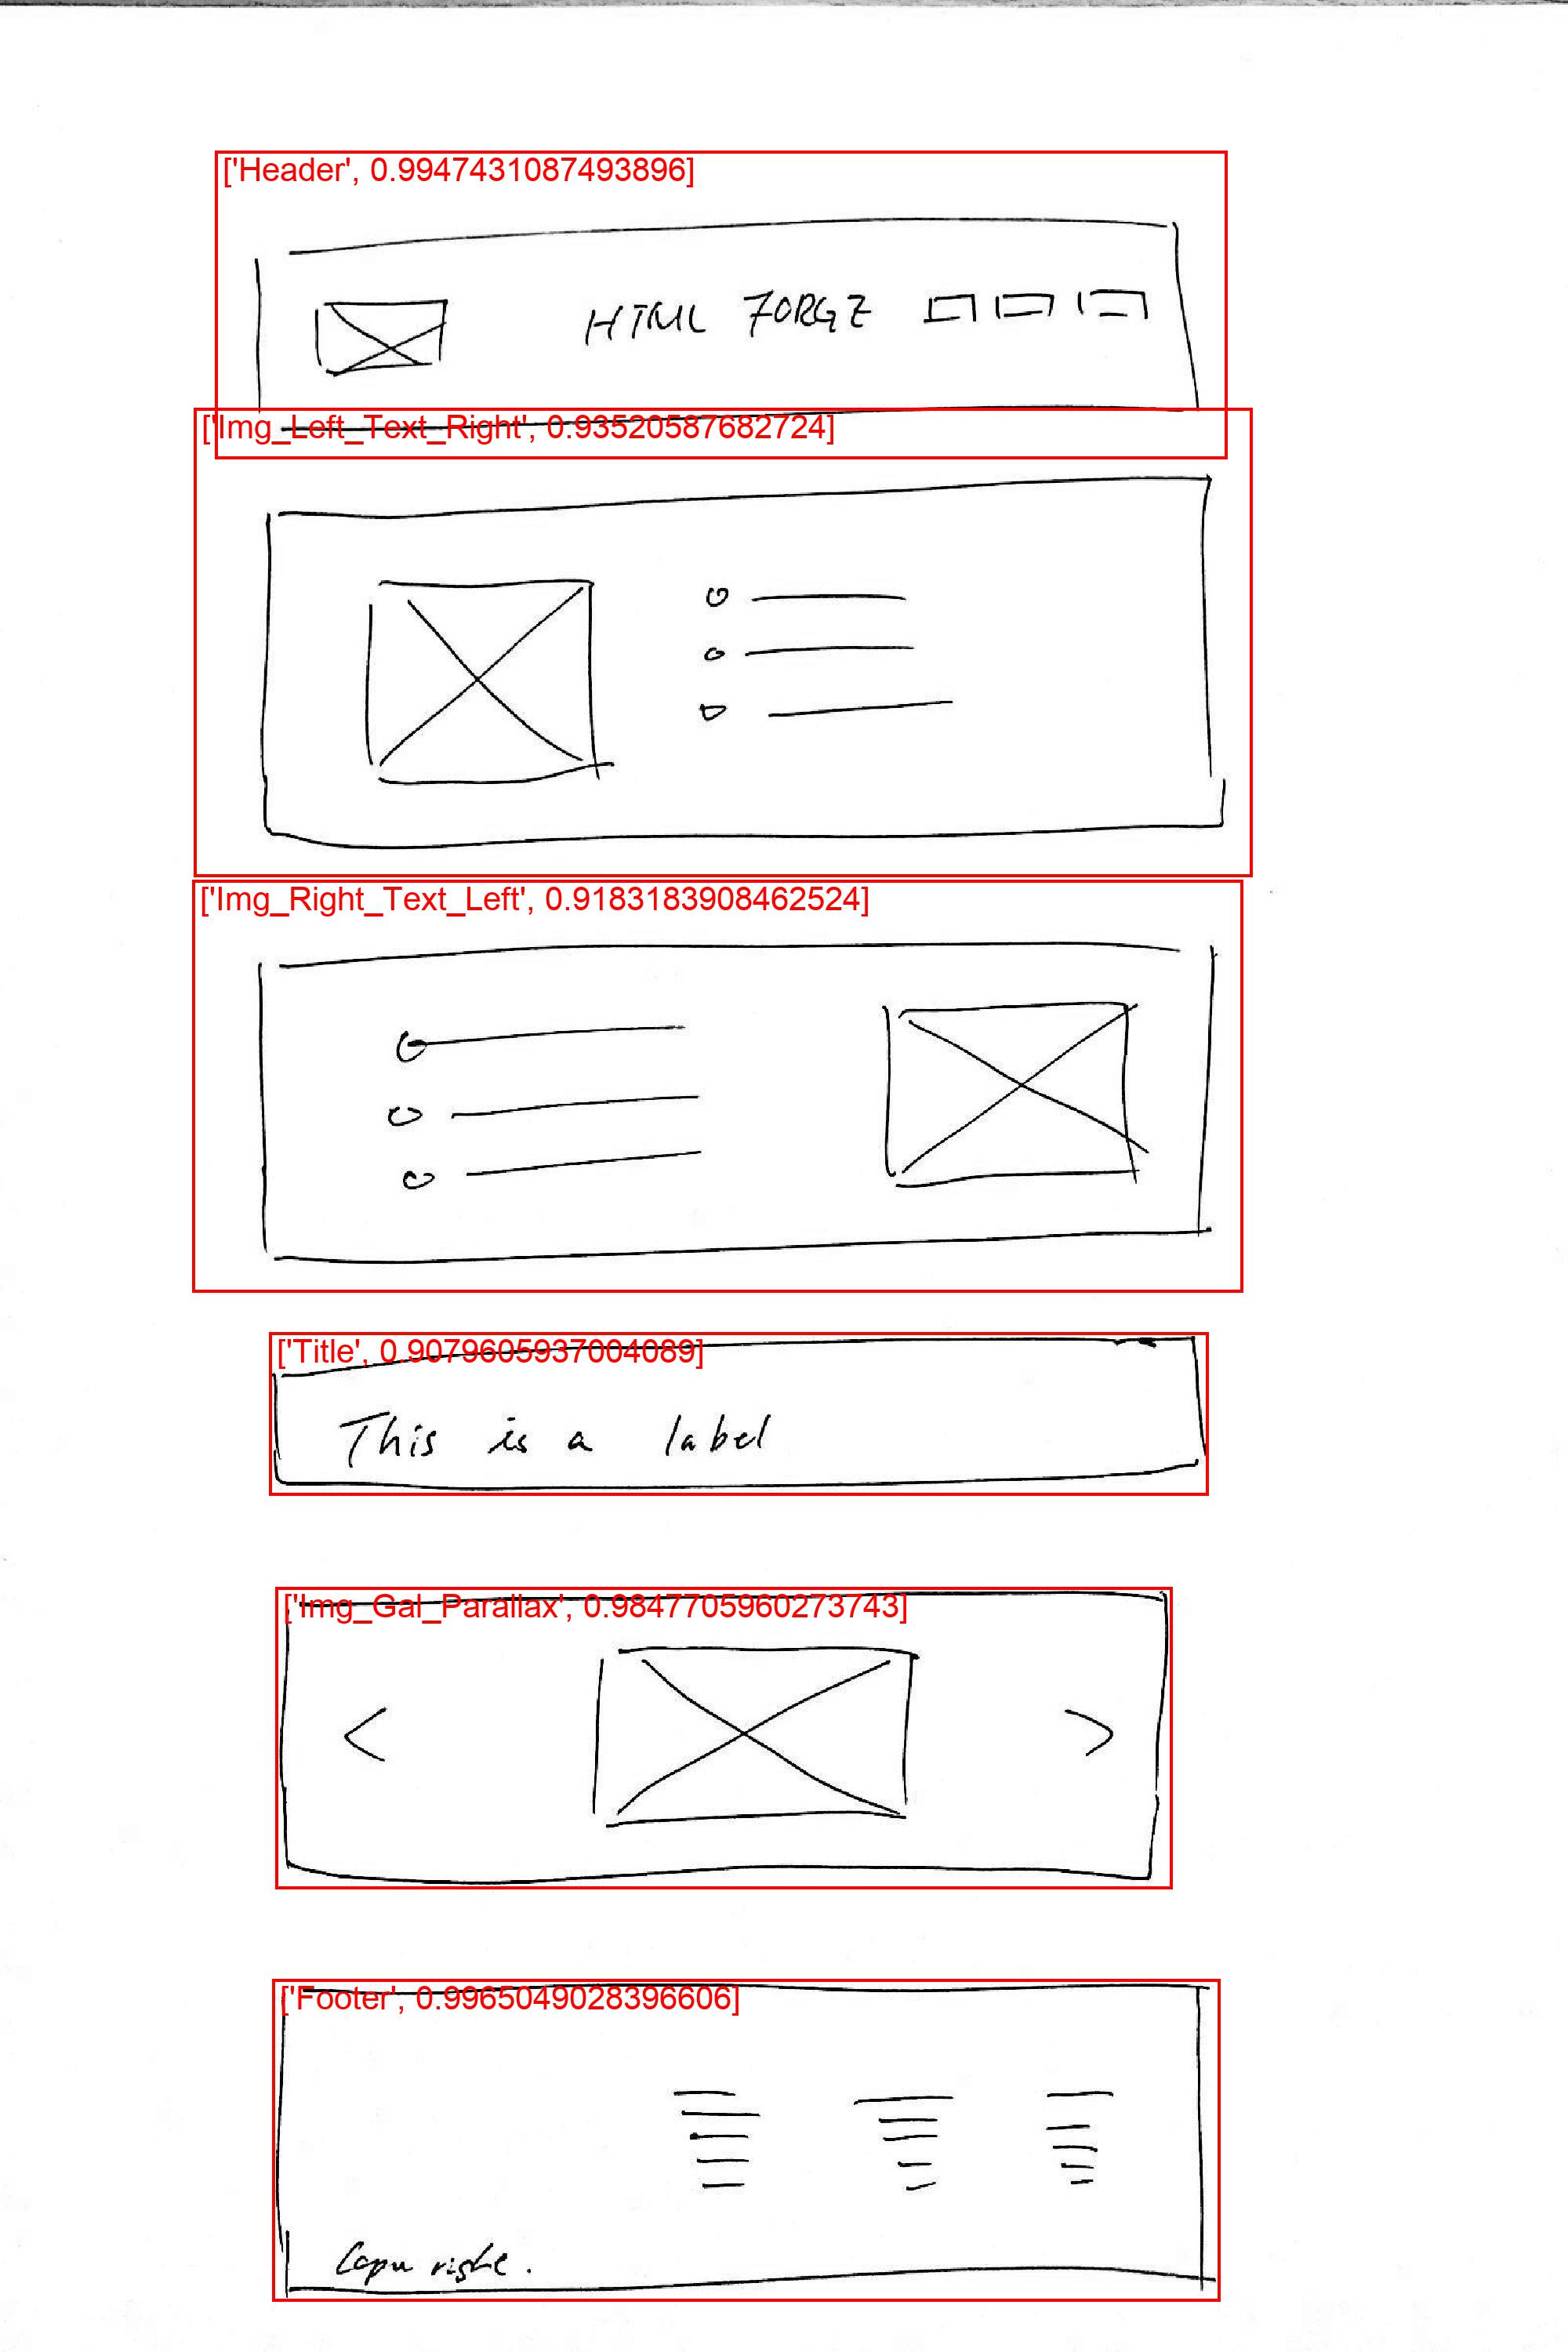 ['Header', 0.9947431087493896]
HTML FORGE
['Img_Left_Text_Right', 0.93520587682724]
['Img_Right_Text_Left', 0.9183183908462524]
['Title', 0.9079605937004089]
This is a label
['Img_Gal_Parallax', 0.9847705960273743]
['Footer', 0.9965049028396606]
Copy right.